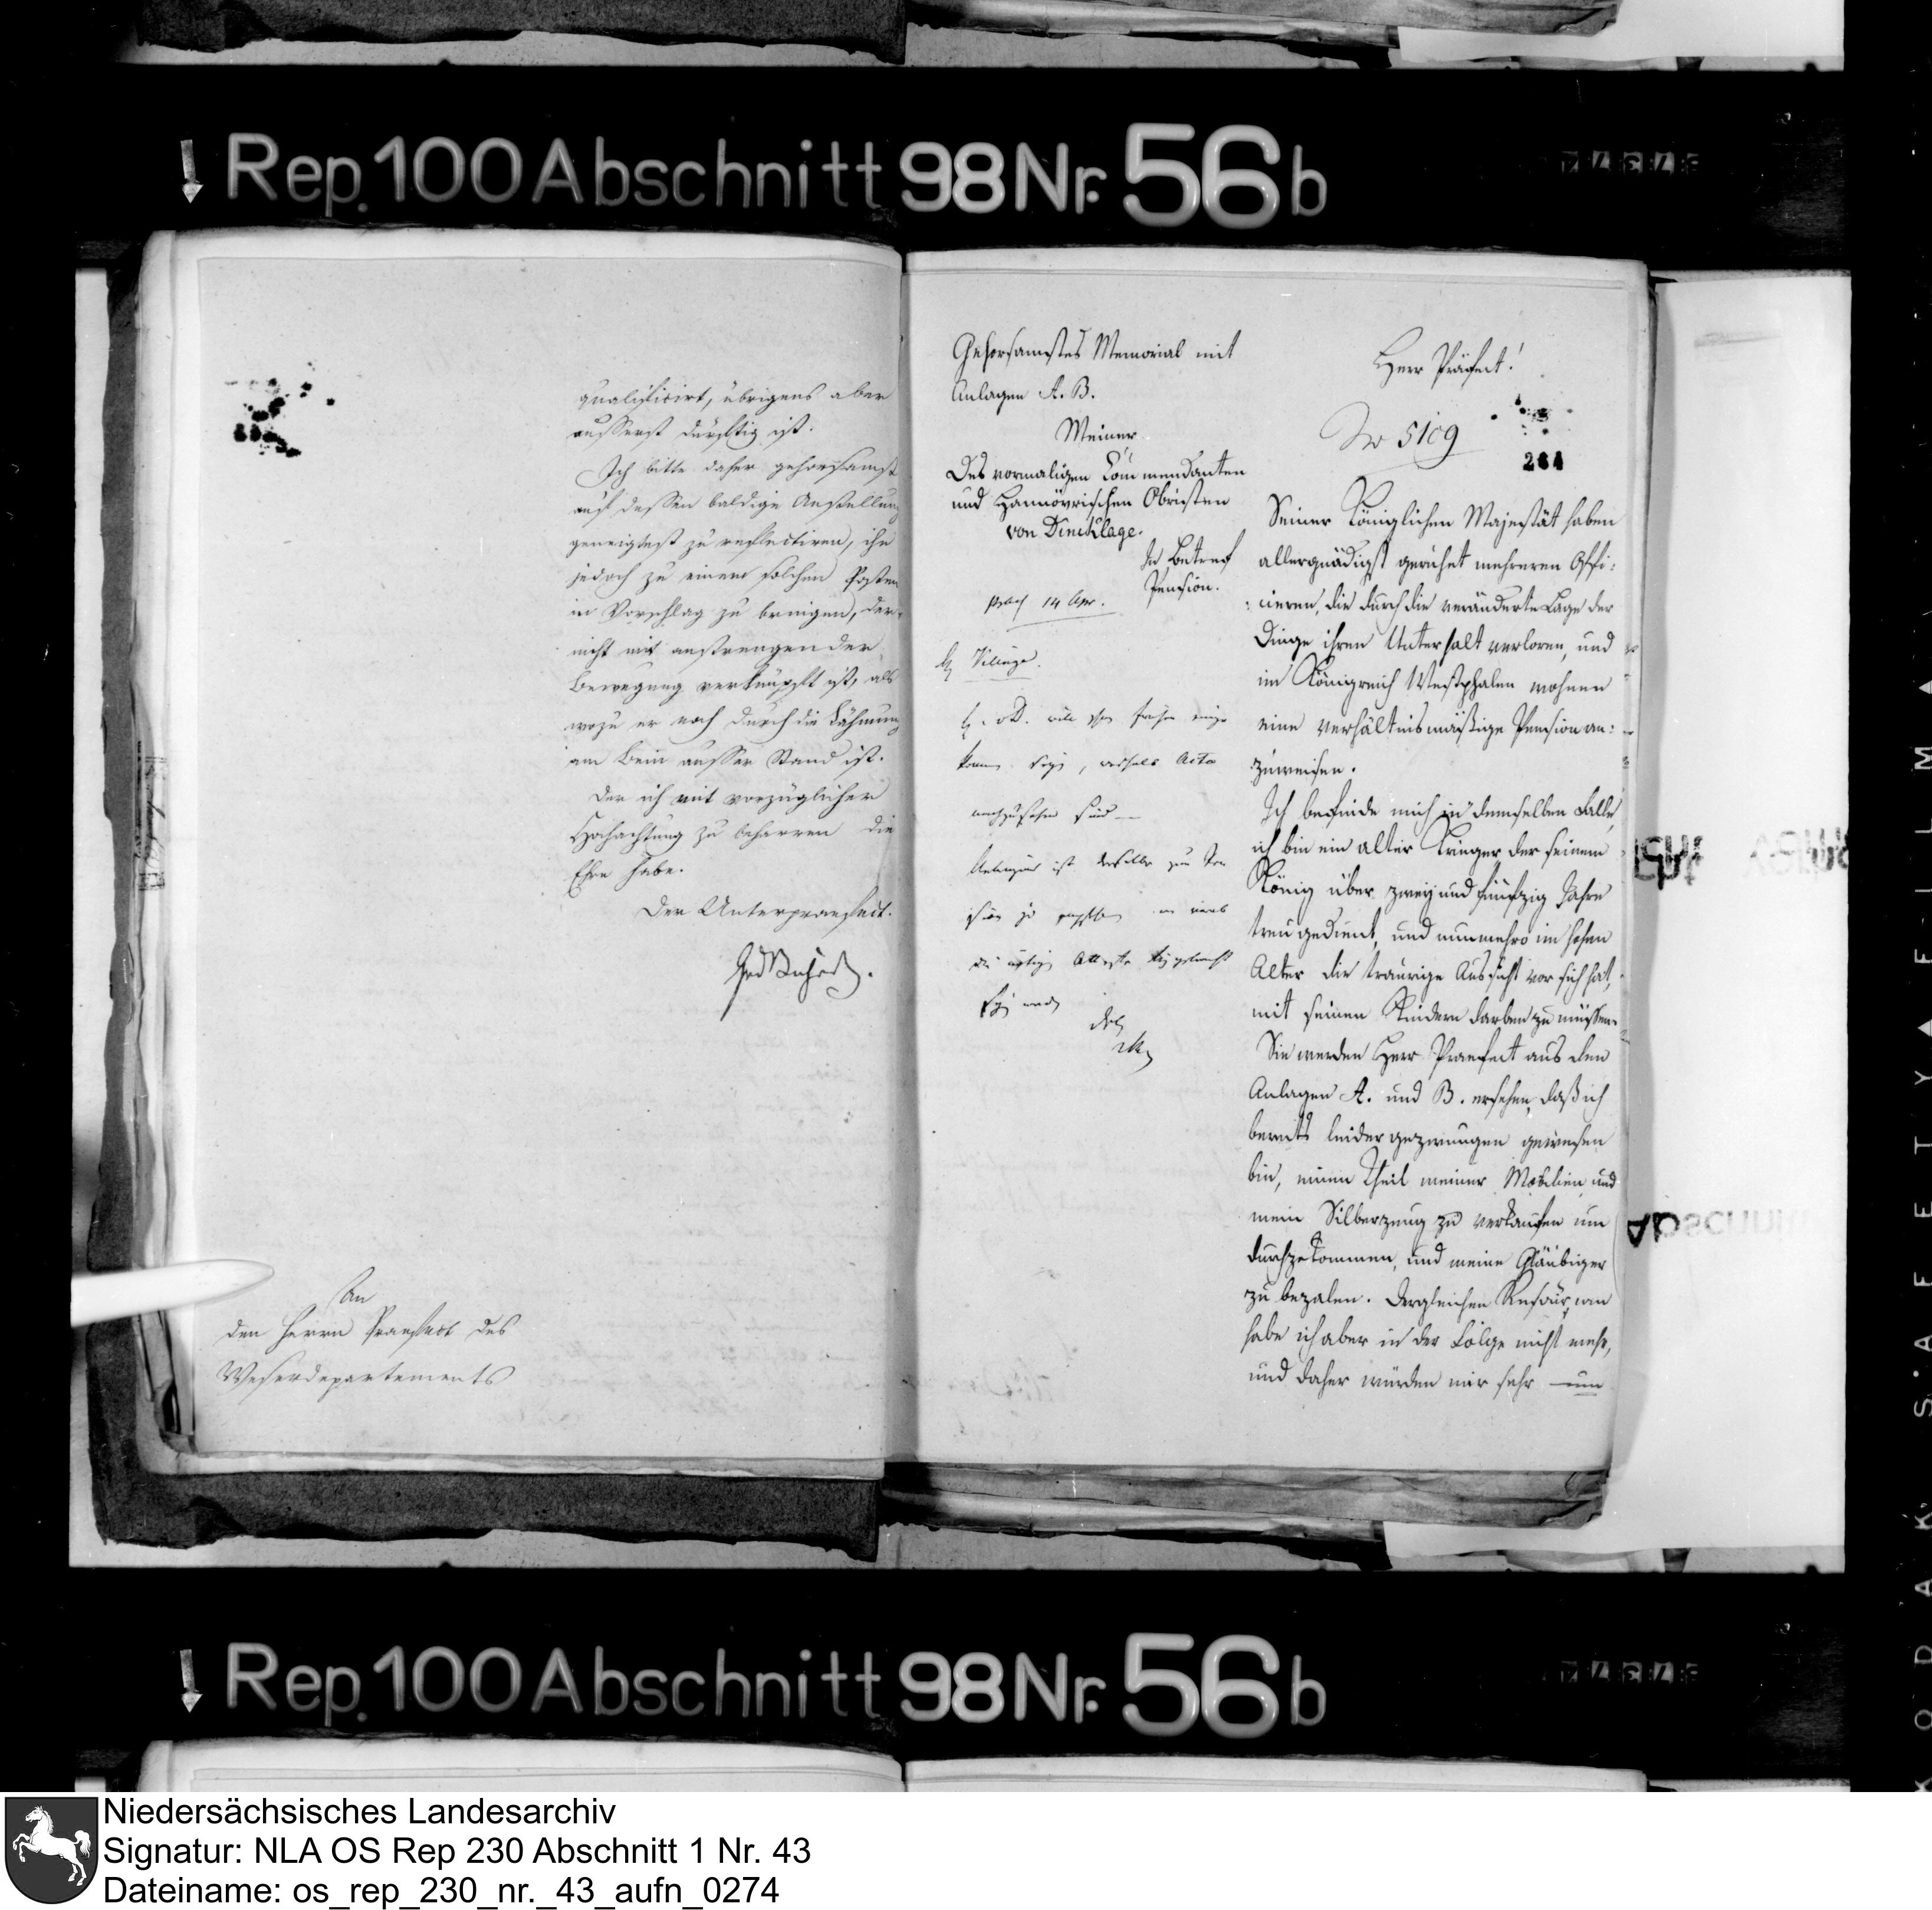 Rep. 100 Abschnitt 98 Nr. 56 b
qualificirt, übrigens aber
äusserst dürftig ist.
Ich bitte daher gehorsamst
auf dessen baldige Anstellung
geneigtest zu reflectiren, ihn
jedoch zu einem solchen Posten
in Vorschlag zu bringen, der
nicht mit anstrengender
Bewegung verknüpft ist, als
wozu er noch durch die Lähmung
am Bein ausser Stand ist.
Der ich mit vorzüglicher
Hochachtung zu beharren die
Ehre habe.
Der Unterpraefect.
An
den Herrn Praefect des
Weserdepartements
Gehorsamstes Memorial mit
Anlagen A. B.
Meiner
Des vormaligen Commendanten
und Hannövrischen Obristen
von Dincklage.
In Betref
Pension.
14 Apr.
nachzusehen sind
Herr Präfect!
No 5109
264
Seiner Königlichen Majestät haben
allergnädigst geruhet mehreren Offi:
:cieren, die durch die veränderte Lage der
Dinge ihren Unterhalt verloren, und
im Königreich Westphalen wohnen
eine verhältnismäßige Pension an:
zuweisen.
Ich befinde mich in demselben Falle,
ich bin ein alter Krieger der seinem
König über zwey und funfzig Jahre
treu gedient, und nunmehro im hohen
Alter die traurige Aussicht vor sich hat,
mit seinen Kindern darben zu müssen.
Sie werden Herr Praefect aus den
Anlagen A. und B. ersehen, daß ich
bereits leider gezwungen gewesen
bin, einen Theil meiner Mobilien und
mein Silberzeug zu verkaufen um
durchzukommen, und meine Gläubiger
zu bezalen. Dergleichen Resourçen
habe ich aber in der Folge nicht mehr,
und daher würden mir sehr um
Rep. 100 Abschnitt 98 Nr. 56 b
Niedersächsisches Landesarchiv
Signatur: NLA OS Rep 230 Abschnitt 1 Nr. 43
Dateiname: os_rep_230_nr._43_aufn_0274